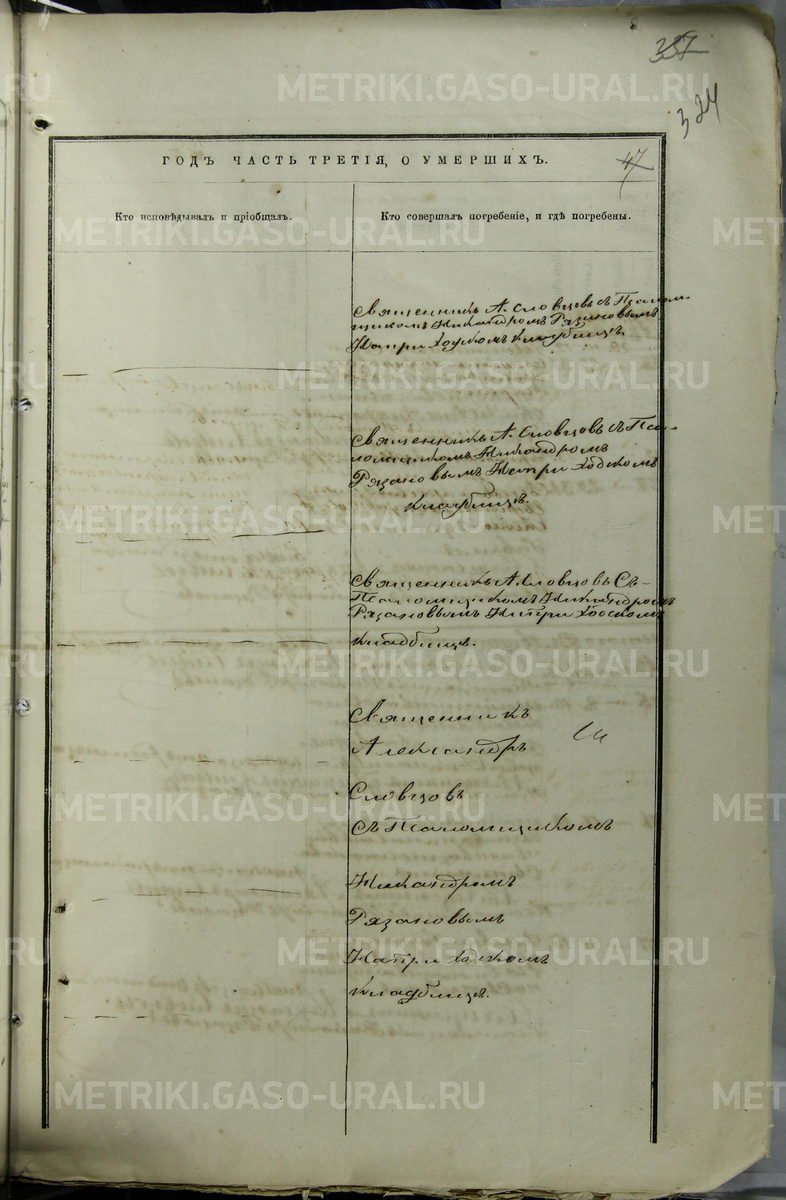 337
324
ГОДЪ ЧАСТЬ ТРЕТІЯ, О УМЕРШИХЪ.
47
Кто исповѣдывалъ и пріобщалъ.
Кто совершалъ погребеніе, и гдѣ погребены.
Священникъ А. Словцовъ съ Псалом-
щикомъ Никандромъ Рязановымъ
На приходскомъ кладбищѣ.
Священникъ А. Словцовъ съ Пса-
ломщикомъ Никандромъ
Рязановымъ На приходскомъ
кладбищѣ.
Священникъ А. Словцовъ Съ-
Псаломщикомъ Никандромъ
Рязановымъ На приходскомъ
кладбищѣ.
Священникъ
Александръ
Словцовъ
Съ Псаломщикомъ
Никандромъ
Рязановымъ
На приходскомъ
кладбищѣ.
METRIKI.GASO-URAL.RU